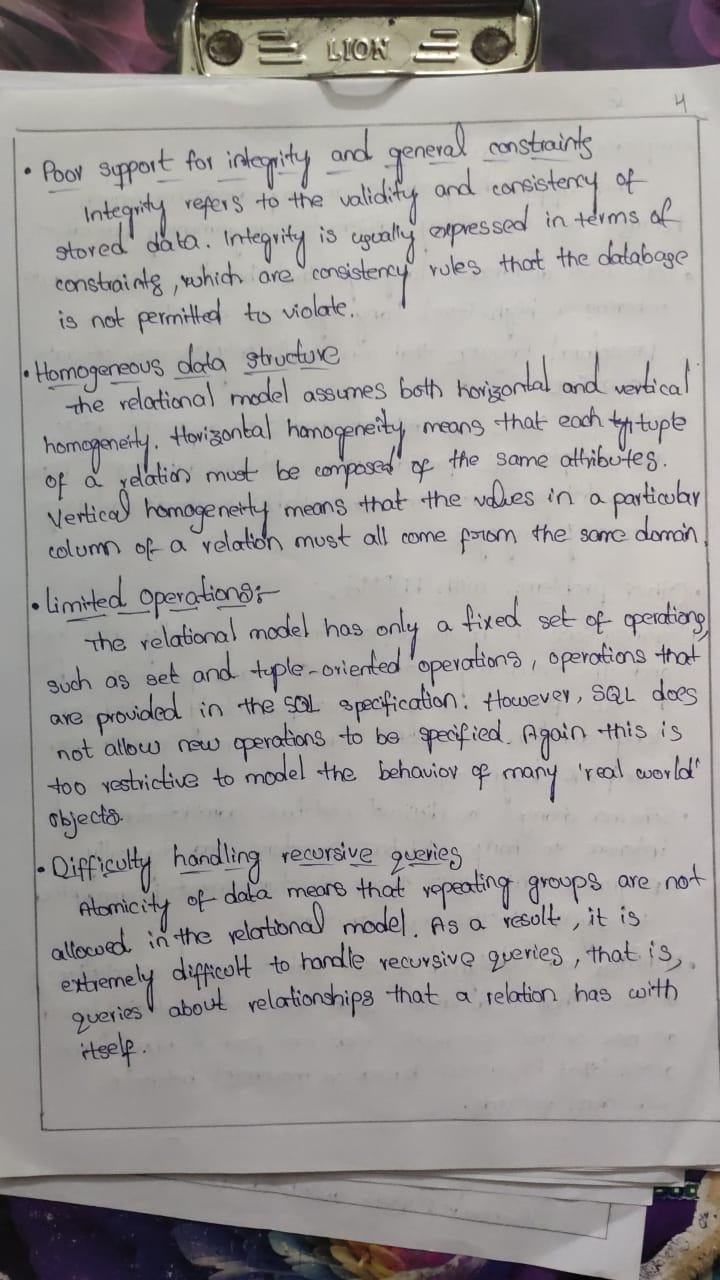 LION
4
• Poor support for integrity and general constraints
Integrity refers to the validity and consistency of
stored data. Integrity is usually expressed in terms of
constraints, which are consistency rules that the database
is not permitted to violate.
• Homogeneous data structure
The relational model assumes both horizontal and vertical
homogeneity. Horizontal homogeneity means that each tuple
of a relation must be composed of the same attributes.
Vertical homogeneity means that the values in a particular
column of a relation must all come from the same domain.
• Limited operations:-
The relational model has only a fixed set of operations,
such as set and tuple-oriented operations, operations that
are provided in the SQL specification. However, SQL does
not allow new operations to be specified. Again this is
too restrictive to model the behavior of many 'real world'
objects.
• Difficulty handling recursive queries
Atomicity of data means that repeating groups are not
allowed in the relational model. As a result, it is
extremely difficult to handle recursive queries, that is,
queries about relationships that a relation has with
itself.